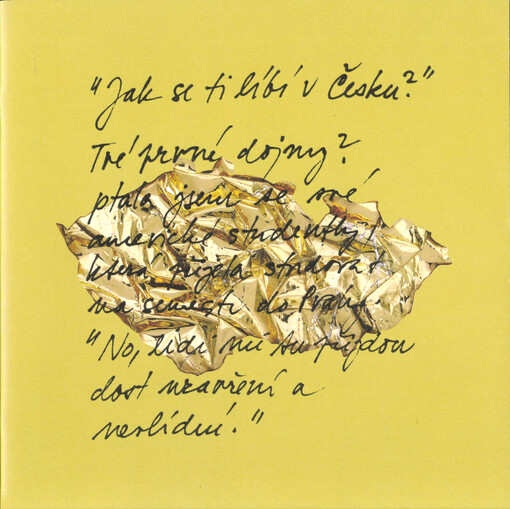 "Jak se ti líbí v Česku?"
Tvé první dojmy?
ptala jsem se své
americké studentky,
která přijela studovat
na semestr do Prahy.
"No, lidi mi tu přijdou
dost uzavření a
nevlídní."